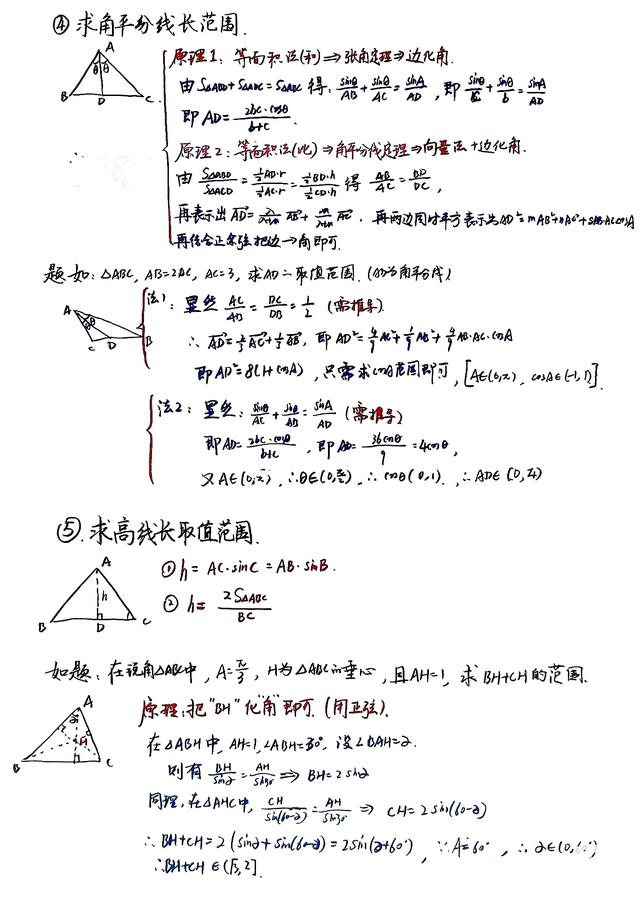 ④ 求角平分线长范围.
A
θ θ
B D C
原理1: 等面积法(和) ⇒ 张角定理 ⇒ 边化角.
由 S△ABD + S△ADC = S△ABC 得: sinθ/AB + sinθ/AC = sinA/AD, 即 sinθ/c + sinθ/b = sinA/AD
即 AD = 2bc·cosθ/(b+c).
原理2: 等面积法(比) ⇒ 角平分线定理 ⇒ 向量法 + 边化角.
由 S△ABD/S△ACD = ½AB·r/½AC·r = ½BD·h/½CD·h 得 AB/AC = BD/DC,
再表示出 AD = AB + AC, 再两边同时平方表示出 AD² = mAB² + nAC² + sAB·AC·cosA
再结合正余弦把边→角即可.
题如: △ABC, AB=2AC, AC=3, 求AD取值范围. (AD为角平分线)
A
θ θ
C D B
法1: 显然 AC/AB = DC/DB = 1/2 (需推导).
∴ AD = 2/3 AC + 1/3 AB, 即 AD² = 4/9 AC² + 1/9 AB² + 4/9 AB·AC·cosA
即 AD² = 8(1+cosA), 只需求cosA范围即可, [A∈(0,π), cosA∈(-1,1)].
法2: 显然: sinθ/AC + sinθ/AB = sinA/AD (需推导)
即 AD = 2bc·cosθ/(b+c), 即 AD = 36cosθ/9 = 4cosθ,
又 A∈(0,π), ∴ θ∈(0,π/2), ∴ cosθ(0,1). ∴ AD∈(0,4)
⑤. 求高线长取值范围.
A
h
B D C
① h = AC·sinC = AB·sinB.
② h = 2S△ABC/BC
如题: 在锐角△ABC中, A=π/3, H为△ABC的垂心, 且AH=1, 求BH+CH的范围.
A
H
B C
原理: 把"BH"化"角"即可. (用正弦).
在△ABH中, AH=1, ∠ABH=30°, 设∠BAH=α.
则有 BH/sinα = AH/sin30° ⇒ BH=2sinα
同理, 在△AHC中, CH/sin(60-α) = AH/sin30° ⇒ CH=2sin(60-α)
∴ BH+CH = 2(sinα + sin(60-α)) = 2sin(α+60°), ∵ A=60°, ∴ α∈(0,60°)
∴ BH+CH∈(√3,2].